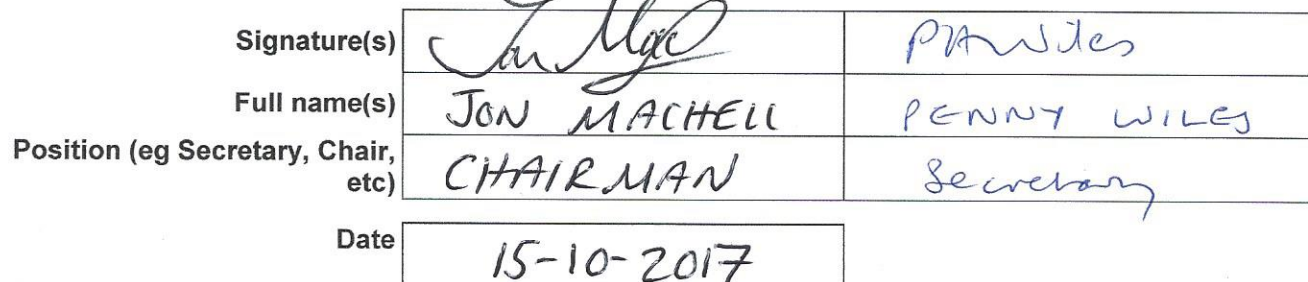 Signature(s) PAWiles
Full name(s) JON MACHELL PENNY WILES
Position (eg Secretary, Chair,
etc) CHAIRMAN Secretary
Date 15-10-2017